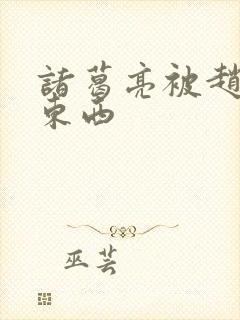 諸葛亮被趙
東西
巫芸